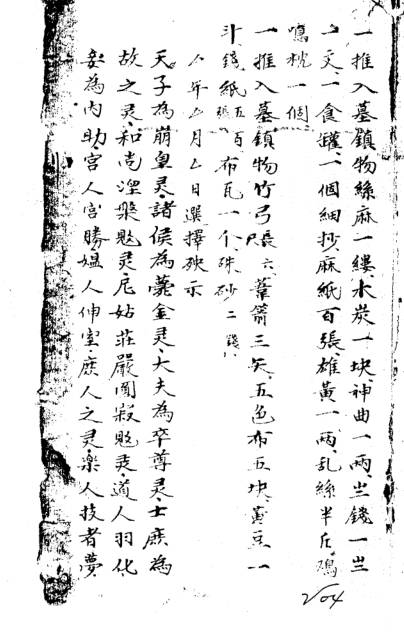 一推入墓鎮物絲麻一縷、木炭一块、神曲一兩、
文、一食罐、一個細抄、麻紙百張、雄黃一兩、乱絲半斤、鸡
鳴枕一個、
一推入墓鎮物竹弓張六、葦箭三矢、五色布五块、黃豆一
斗、錢紙五百張布瓦一个硃砂二錢、
年 月 日選擇殃示
天子為崩皇灵、諸侯為薨金灵、大夫為卒尊灵、士庶為
故之灵、和尚涅槃覐灵尼姑莊嚴圓寂覐灵、道人羽化、
妾為內助、宮人宮勝媪人伸室庶人之灵、樂人技者夢、
204